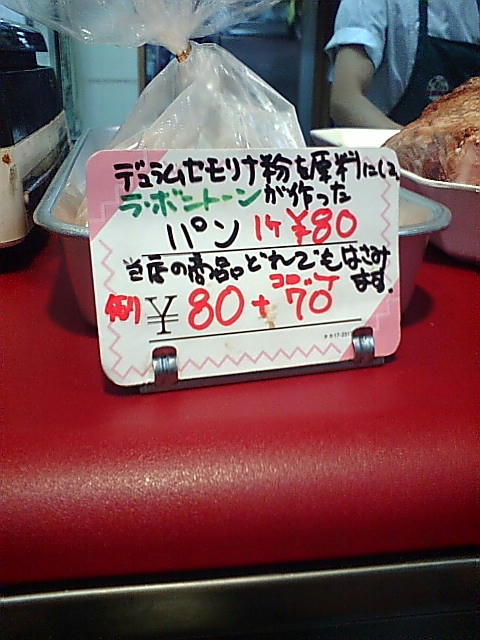 デュラムセモリナ粉を原料にして
ラ・ボントーンが作った
パン 1ケ ¥80
当店の商品。どれでもはさみ
ます。
例) ¥80+70